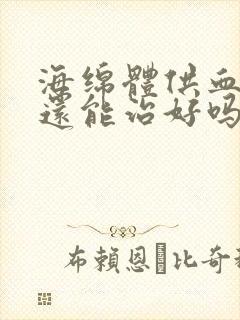 海绵體供血
還能治好吗
布賴恩·比奇